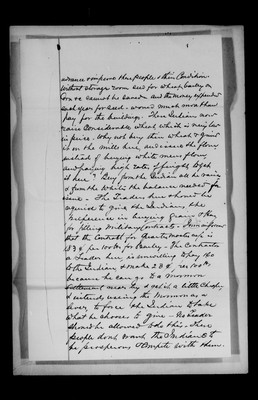 advance & improve these people & their Condition.
Without storage room seed for wheat, barley or
Corn cannot be saved and the money expended
each year for seed would much more than
pay for the buildings. These Indians now
raise Considerable wheat which is very low
in price. Why not buy their wheat & grind
in on the mill here and issue the flour
instead of buying white mens flour
and paying high rates of freight to get
it here? Buy from the Indian all he raises
& from the whites the balance needed for
issue. The Traders here should be
required to give the Indians the
preference in buying Grain & Hay
for filling Military Contracts. I am informed
that the Contract for Quartermasters Dept is
per 100 lbs for Barley. The Contractor
a Trader here, is unwilling to pay 160
to the Indian & make per 100 lbs.
because he can go to a Mormon
Settlement near by & get it a little Cheaper
& intends using the Mormon as a
lever to force the Indian to take
what he chooses to give. No Trader
should be allowed to do this. These
people dont want the Indians to
be prosperous & Compete with them.